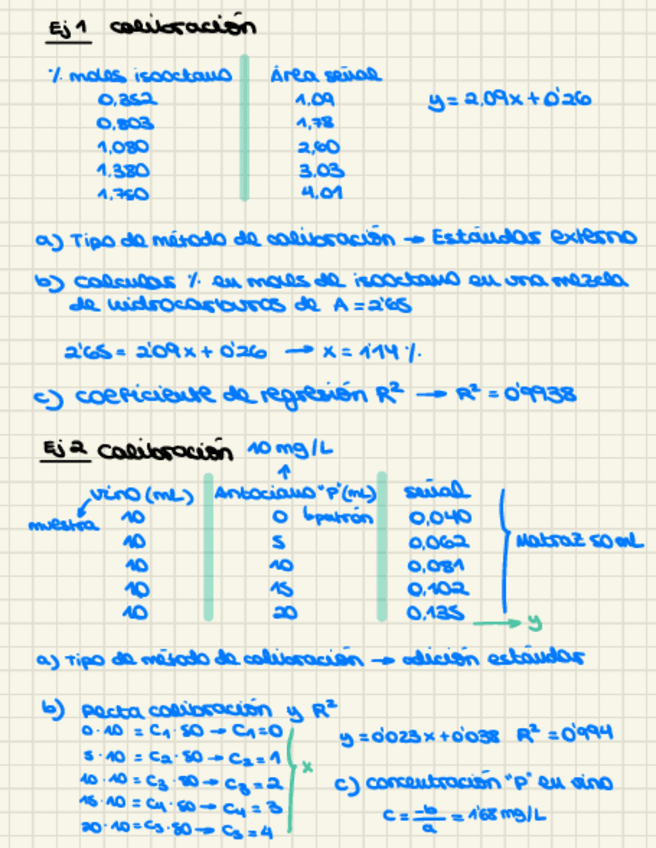 Ej 1 calibración
% moles isooctano Área señal
0,352 1,09 y = 2,09x + 0'26
0,803 1,78
1,080 2,60
1,380 3,03
1,750 4,01
a) Tipo de método de calibración → Estándar externo
b) Calcular % en moles de isooctano en una mezcla
de hidrocarburos de A = 2'65
2'65 = 2'09x + 0'26 → x = 1'14 %.
c) coeficiente de regresión R² → R² = 0'9938
Ej 2 calibración 10 mg/L
vino (mL) Antociano "P" (mL) señal
muestra 10 0 ↳patrón 0,040
10 5 0,062 Matraz 50 mL
10 10 0,081
10 15 0,102
10 20 0,135 → y
a) Tipo de método de calibración → adición estándar
b) Recta calibración y R²
0·10 = C₁·50 → C₁=0 y = 0'023x + 0'038 R² = 0'994
5·10 = C₂·50 → C₂ = 1
10·10 = C₃·50 → C₃ = 2 x c) concentración "P" en vino
15·10 = C₄·50 → C₄ = 3 C = -b/a = 1'68 mg/L
20·10 = C₅·50 → C₅ = 4